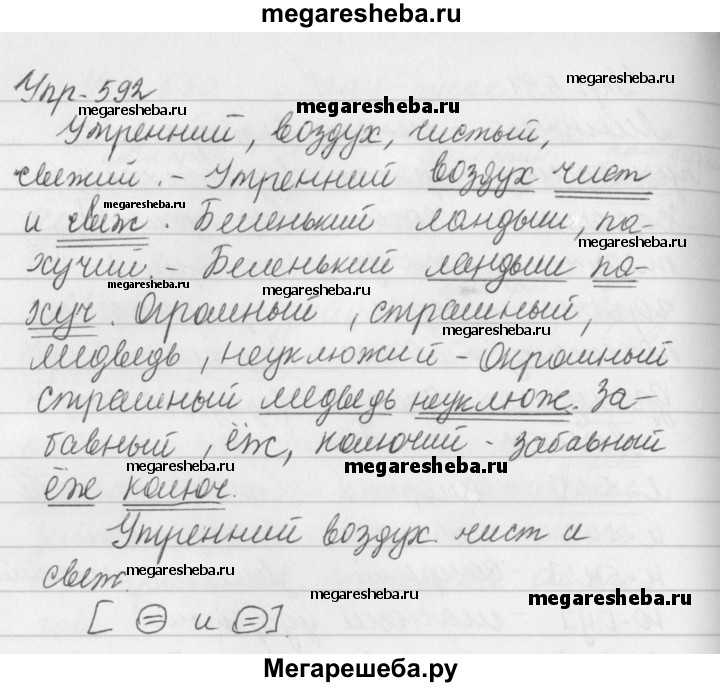 megaresheba.ru
Упр. 592
megaresheba.ru
megaresheba.ru
megaresheba.ru
Утренний, воздух, чистый,
свежий. - Утренний воздух чист
megaresheba.ru
megaresheba.ru
и свеж. Беленький ландыш, па-
хучий. - Беленький ландыш па-
megaresheba.ru
megaresheba.ru
хуч. Огромный, страшный,
megaresheba.ru
медведь, неуклюжий - Окромный
страшный медведь неуклюж. За-
бавный, ёж, колючий - забавный
megaresheba.ru
megaresheba.ru
ёж колюч.
Утренний воздух чист и
свеж.
megaresheba.ru
megaresheba.ru
megaresheba.ru
[ и ].
Мегарешеба.ру